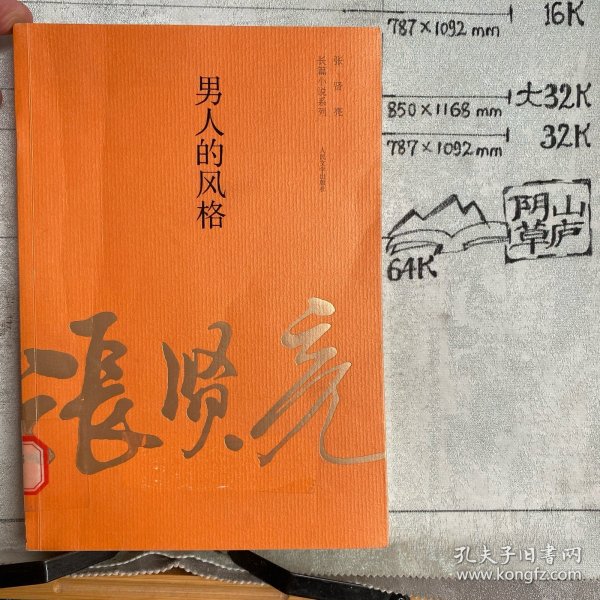 男人的风格
张贤亮
长篇小说系列
人民文学出版社
張贤亮
16K
787×1092 mm
850×1168 mm
大32K
787×1092 mm
32K
64K
阴山
草庐
孔夫子旧书网
www.kongfz.com